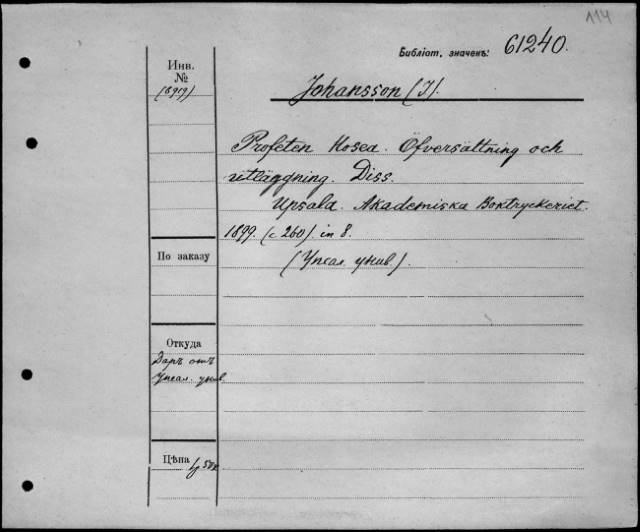 114
Библіот. значекъ: 61240.
Инв.
№
(8919)
Johansson (J).
Profeten Hosea. Öfversättning och
utläggning. Diss.
Upsala. Akademiska Boktryckeriet.
1899. (с 260). in 8.
(Упсал. унив.).
По заказу
Откуда
Даръ отъ
Упсал. унив.
Цѣна
50к